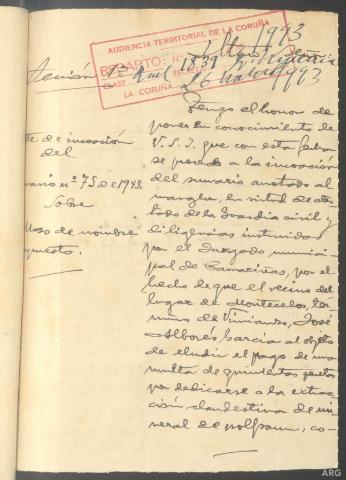 AUDIENCIA TERRITORIAL DE LA CORUÑA
REPARTO: Nº
1943
CLASE
LA CORUÑA
1839
1943
Sección 1ª
Tengo el honor de
poner en conocimiento de
V.S.I. que con esta fecha
se procede a la incoación
del sumario anotado al
margen, en virtud de ates
tado de la Guardia civil y
diligencias instruidas
por el Juzgado munici
pal de Camariñas, por el
hecho de que el vecino del
lugar de Montecelos, tér
mino de Vimianzo, José
Alborés García al objeto
de eludir el pago de una
multa de quinientas pesetas
por dedicarse a la extrac
ción clandestina de mi
neral de wolfram, co-
te de incoación
del
ario nº 75 de 1943.
Sobre
Uso de nombre
puesto.
ARG